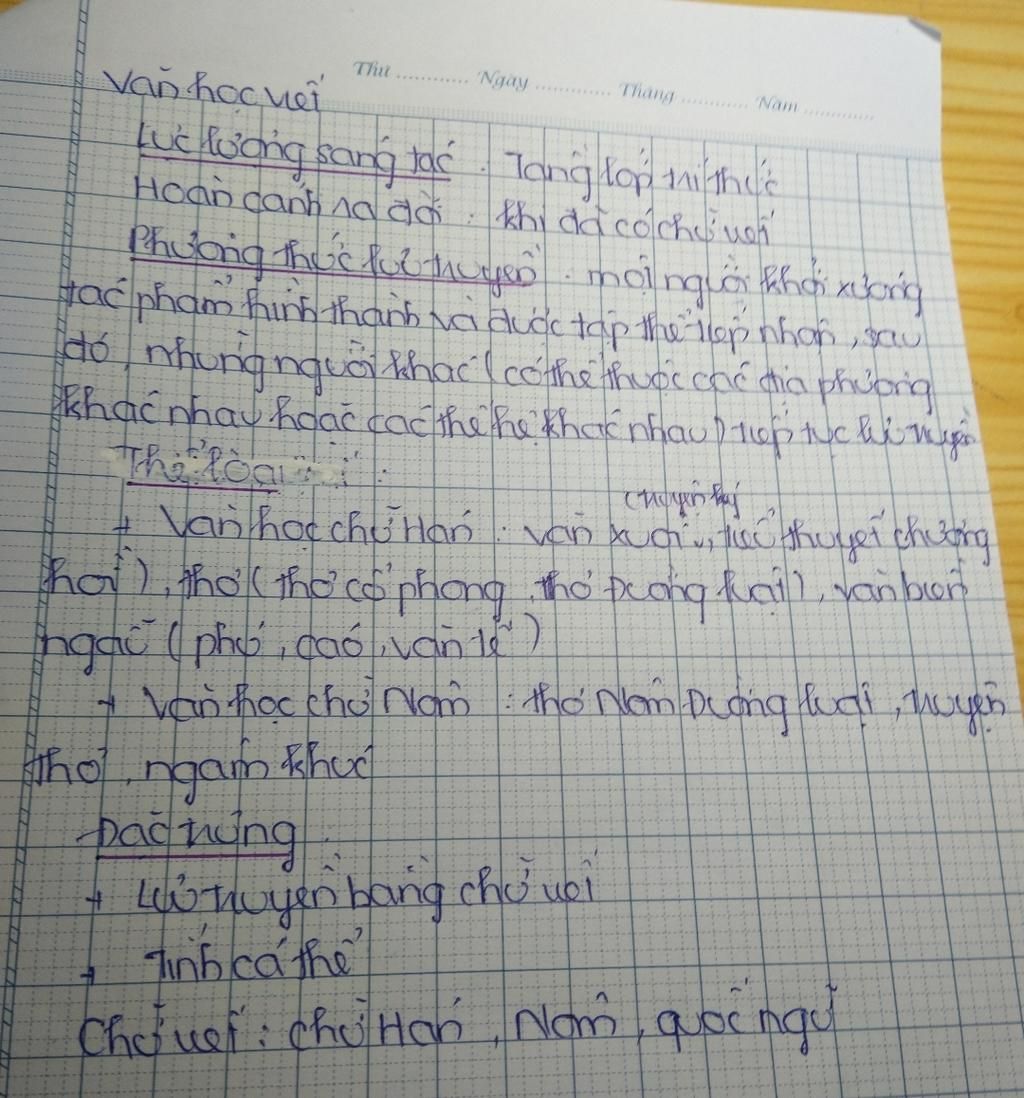 Thứ ............ Ngày ............ Tháng ............ Năm ............
Văn học viết
Lực lượng sáng tác : Tầng lớp trí thức
Hoàn cảnh ra đời : khi đã có chữ viết
Phương thức lưu truyền : mỗi người khởi xướng
tác phẩm hình thành và được tập thể tiếp nhận, sau
đó, những người khác (có thể thuộc các địa phương
khác nhau hoặc các thế hệ khác nhau) tiếp tục lưu truyền
Thể loại :
+ Văn học chữ Hán : văn xuôi (truyện ký, tiểu thuyết chương
hồi), thơ (thơ cổ phong, thơ Đường luật), văn biền
ngẫu (phú, cáo, văn tế)
+ Văn học chữ Nôm : thơ Nôm Đường luật, truyện
thơ, ngâm khúc
Đặc trưng :
+ Lưu truyền bằng chữ viết
+ Tính cá thể
Chữ viết : chữ Hán, Nôm, quốc ngữ